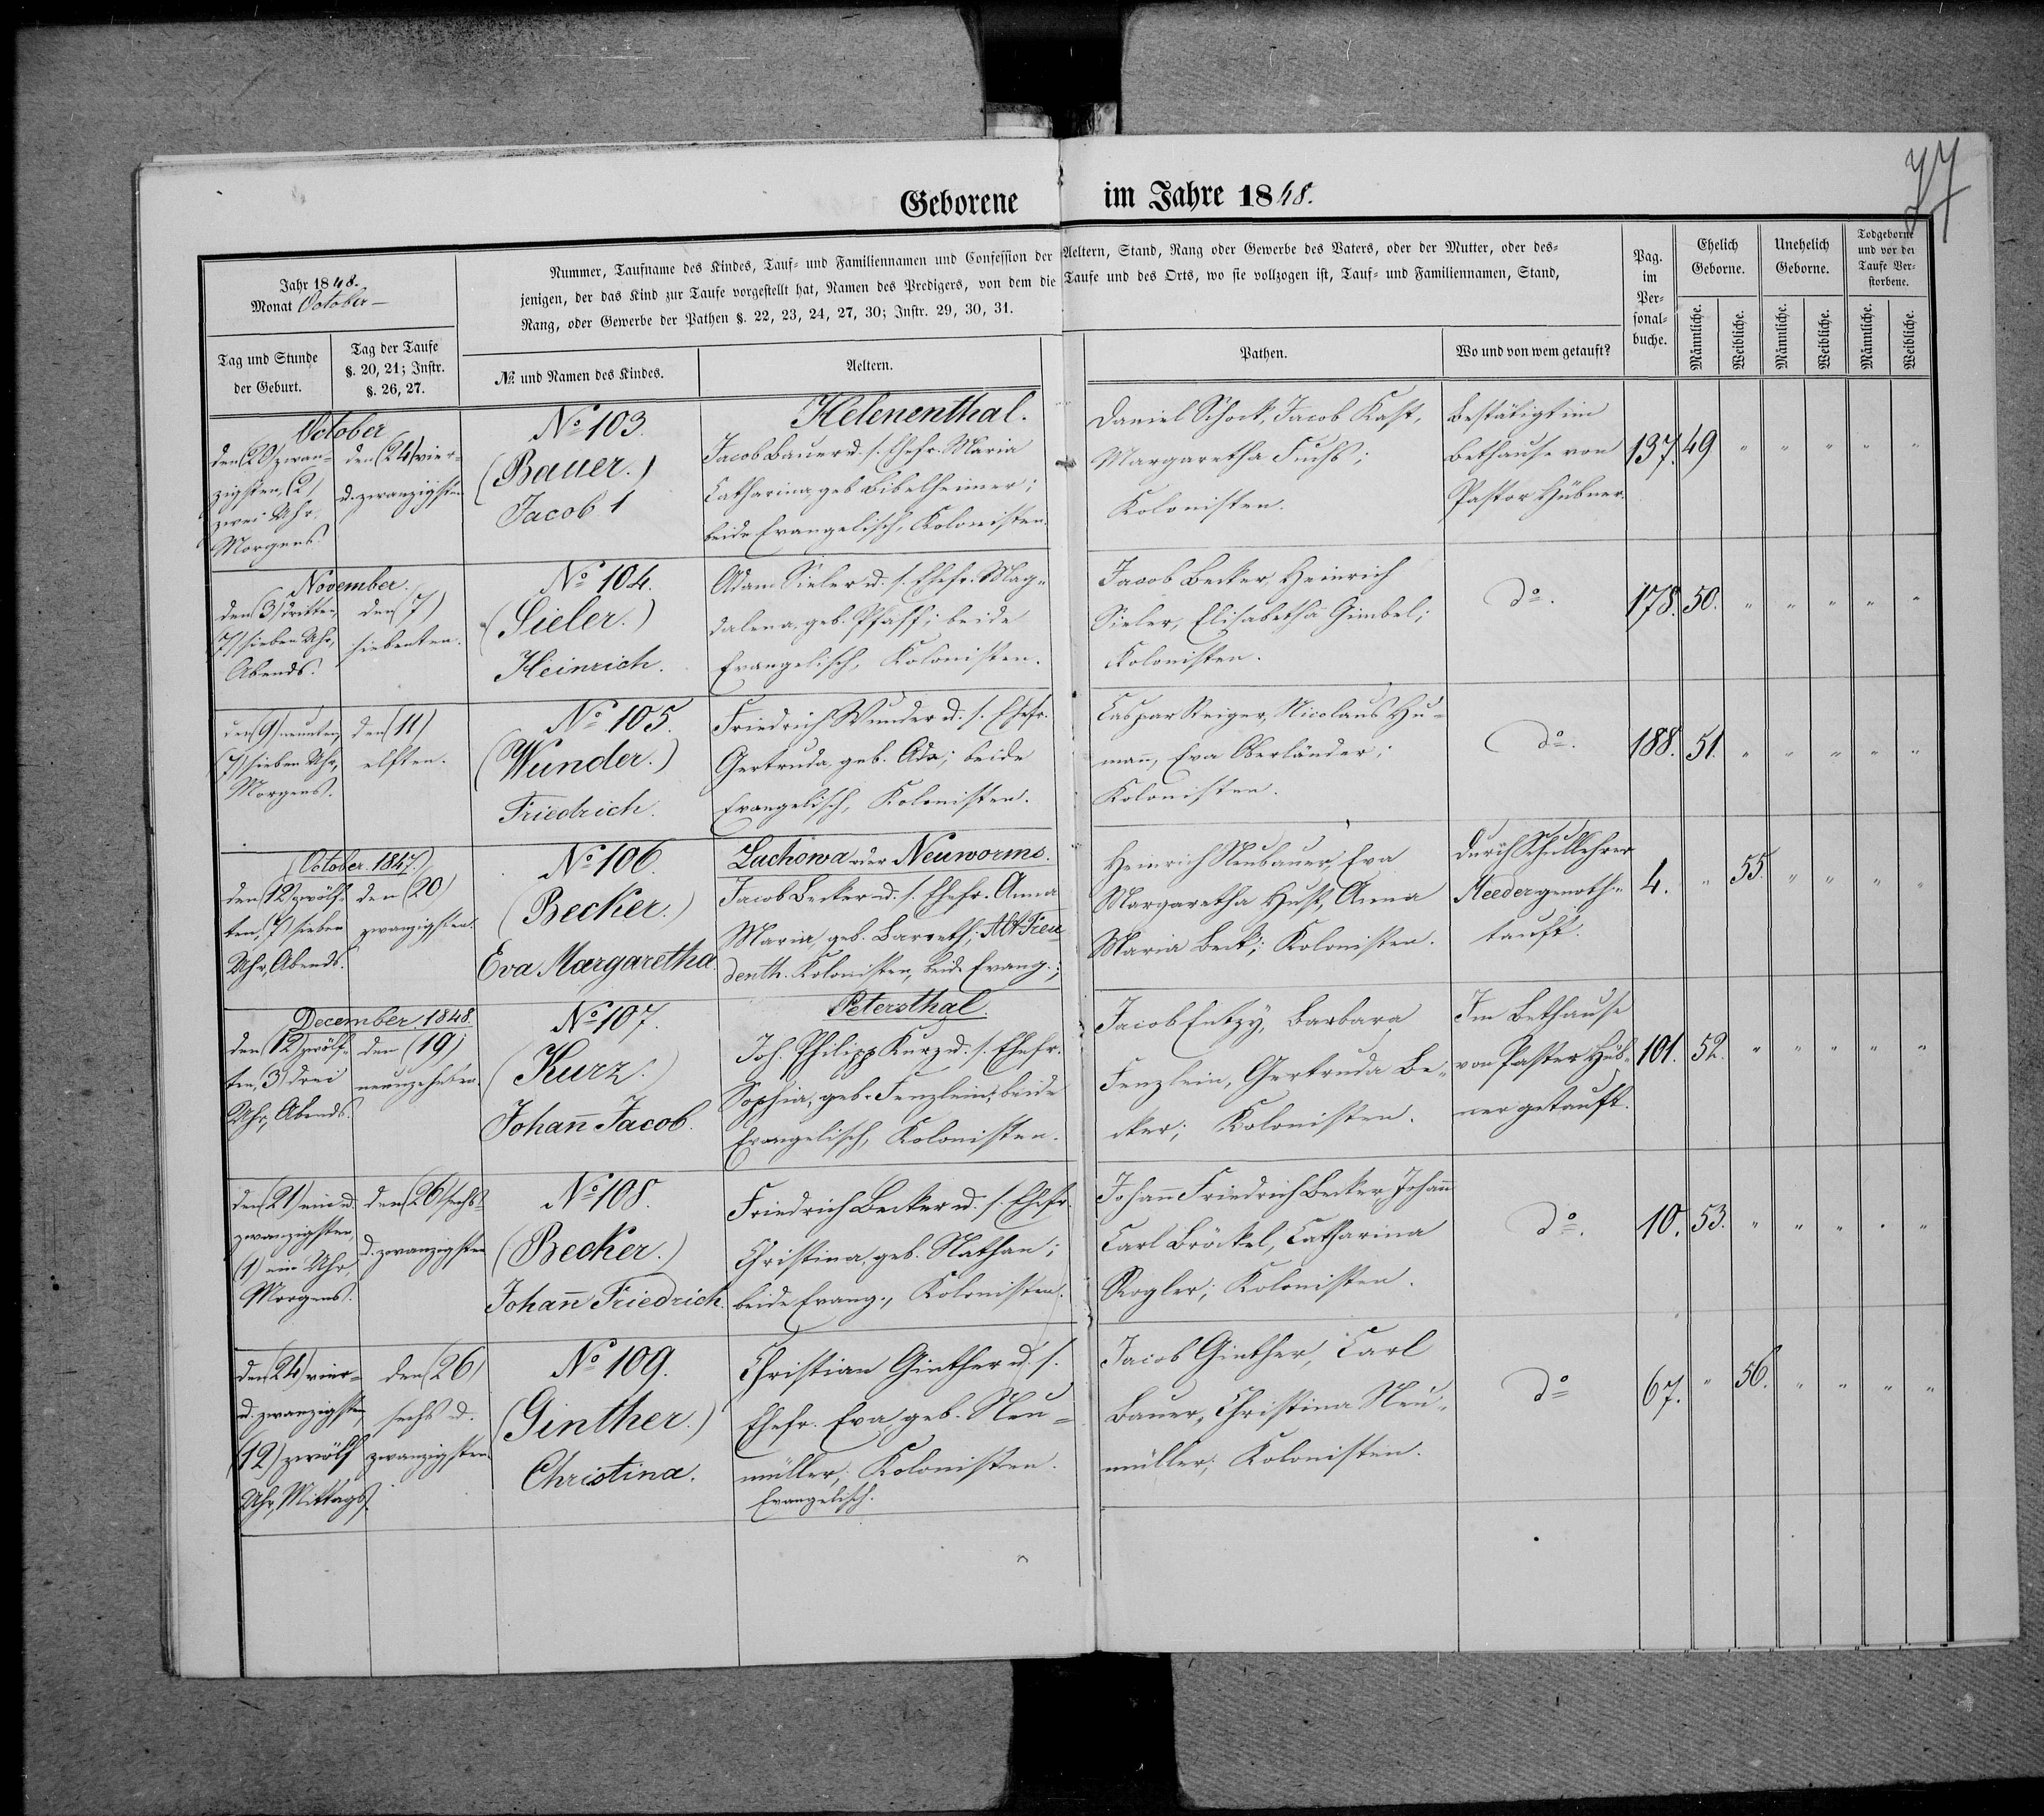 77
Geborene im Jahre 1848.
Jahr 1848.
Monat October –
Nummer, Taufname des Kindes, Tauf- und Familiennamen und Confession der Aeltern, Stand, Rang oder Gewerbe des Vaters, oder der Mutter, oder des-
jenigen, der das Kind zur Taufe vorgestellt hat, Namen des Predigers, von dem die Taufe und des Orts, wo sie vollzogen ist, Tauf- und Familiennamen, Stand,
Rang, oder Gewerbe der Pathen §. 22, 23, 24, 27, 30; Instr. 29, 30, 31.
Pag.
im
Per-
sonal-
buche.
Ehelich
Geborne.
Unehelich
Geborne.
Todgeborne
und vor der
Taufe Ver-
storbene.
Männliche.
Weibliche.
Männliche.
Weibliche.
Männliche.
Weibliche.
Tag und Stunde
der Geburt.
Tag der Taufe
§. 20, 21; Instr.
§. 26, 27.
№ und Namen des Kindes.
Aeltern.
Pathen.
Wo und von wem getauft?
October
den (20) zwan-
zigsten, (2)
zwei Uhr,
Morgens.
den (24) vier-
u. zwanzigsten
No 103.
(Bauer.)
Jacob 1
Helenenthal.
Jacob Bauer u. s. Ehefr. Maria
Catharina, geb. Bibelheimer;
beide Evangelisch, Kolonisten.
Daniel Schock, Jacob Kast,
Margaretha Fuchs;
Kolonisten.
Bestätigt im
Bethause von
Pastor Hübner.
137. 49 " " " " "
November.
den (3) dritten,
(7) sieben Uhr,
Abends.
den (7)
siebenten.
No 104.
(Sieler.)
Heinrich.
Adam Sieler u. s. Ehefr. Mag-
dalena, geb. Pfaff; beide
Evangelisch, Kolonisten.
Jacob Becker, Heinrich
Sieler, Elisabetha Gimbel;
Kolonisten.
do.
178. 50. " " " " "
den (9) neunten,
(7) sieben Uhr,
Morgens.
den (11)
elften.
No 105.
(Wunder.)
Friedrich.
Friedrich Wunder u. s. Ehefr.
Gertruda, geb. Ada; beide
Evangelisch, Kolonisten.
Caspar Steiger, Nicolaus Hu-
mañ, Eva Oberländer;
Kolonisten.
do.
188. 51. " " " " "
(October. 1847.)
den (12) zwölf-
ten, (7) sieben
Uhr, Abends.
den (20)
zwanzigsten.
No 106.
(Becker.)
Eva Margaretha.
Luchowa oder Neuworms.
Jacob Becker u. s. Ehefr. Anna
Maria, geb. Barreth; Alt Freu
denth. Kolonisten, beide Evang.;
Heinrich Neubauer, Eva
Margaretha Hust, Anna
Maria Beck; Kolonisten.
durch Schullehrer
Reeder genoth-
tauft.
4. " 55. " " " "
December. 1848.
den (12) zwölf-
ten, (3) drei
Uhr, Abends.
den (19)
neunzehnten.
No 107.
(Kurz.)
Johañ Jacob.
Petersthal.
Joh. Philipp Kurz u. s. Ehefr.
Sophia, geb. Fenzlein; beide
Evangelisch, Kolonisten.
Jacob Enzy, Barbara
Fenzlein, Gertruda Be-
cker; Kolonisten.
Im Bethause
von Pastor Hüb-
ner getauft.
101. 52. " " " " "
den (21) ein u.
zwanzigsten,
(1) ein Uhr,
Morgens.
den (26) sechs
u. zwanzigsten
No 108.
(Becker.)
Johañ Friedrich.
Friedrich Becker u. s. Ehefr.
Christina, geb. Nathan;
beide Evang., Kolonisten.
Johañ Friedrich Becker, Johañ
Carl Bröckel, Catharina
Rogler; Kolonisten.
do.
10. 53. " " " " "
den (24) vier-
u. zwanzigsten,
(12) zwölf
Uhr, Mittags.
den (26)
sechs u.
zwanzigsten.
No 109.
(Ginther.)
Christina.
Christian Ginther u. s.
Ehefr. Eva, geb. Neu-
müller; Kolonisten.
Evangelisch.
Jacob Ginther, Carl
Bauer, Christina Neu-
müller; Kolonisten.
do
67. " 56. " " " "